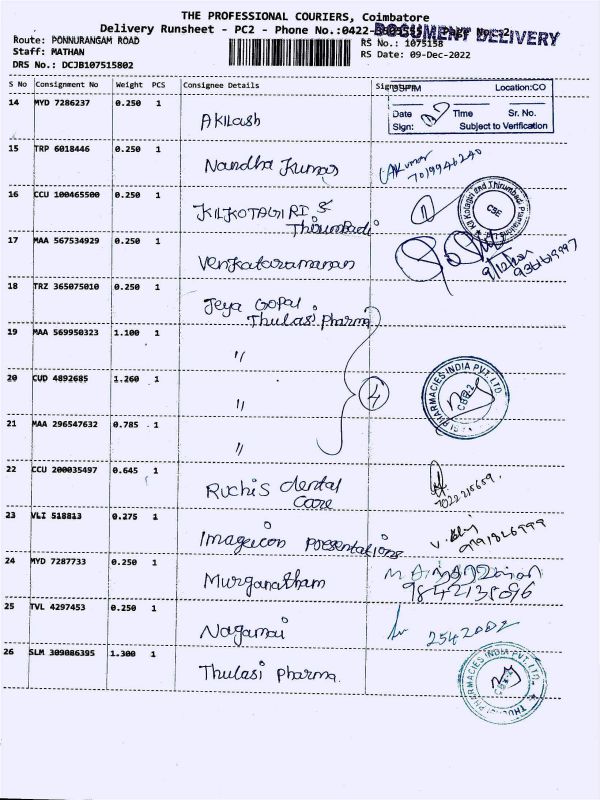 THE PROFESSIONAL COURIERS, Coimbatore
Delivery Runsheet - PC2 - Phone No.:0422- Page No.:2
DOCUMENT DELIVERY
Route: PONNURANGAM ROAD
RS No.: 1075158
Staff: MATHAN
RS Date: 09-Dec-2022
DRS No.: DCJB107515802
S No Consignment No Weight PCS Consignee Details
Location:CO
Date Time Sr. No.
Sign: Subject to Verification
14 MYD 7286237 0.250 1
Akilash
15 TRP 6018446 0.250 1
Nandha Kumar
7019946240
16 CCU 100465500 0.250 1
KILKOTAGIRI &
Thirumbadi
CBE
17 MAA 567534929 0.250 1
Venkataramanan
9/12/2022
18 TRZ 365075010 0.250 1
Jeya Gopal
Thulasi Pharma
19 MAA 569950323 1.100 1
"
20 CUD 4892685 1.260 1
"
4
PHARMACIES INDIA PVT. LTD
CBE-2
21 MAA 296547632 0.785 1
"
22 CCU 200035497 0.645 1
Ruchis dental
care
7022215659
23 VLI 518813 0.275 1
Imageicon presentations
24 MYD 7287733 0.250 1
Murganatham
9842135096
25 TVL 4297453 0.250 1
Nagamai
2542002
26 SLM 309086395 1.300 1
Thulasi pharma.
PHARMACIES INDIA PVT. LTD.
CBE-2